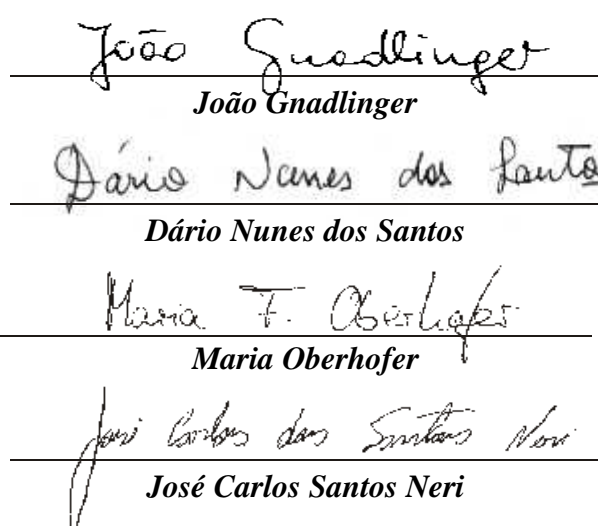 João Gnadlinger
João Gnadlinger
Dário Nunes dos Santos
Dário Nunes dos Santos
Maria F. Oberhofer
Maria Oberhofer
José Carlos dos Santos Neri
José Carlos Santos Neri